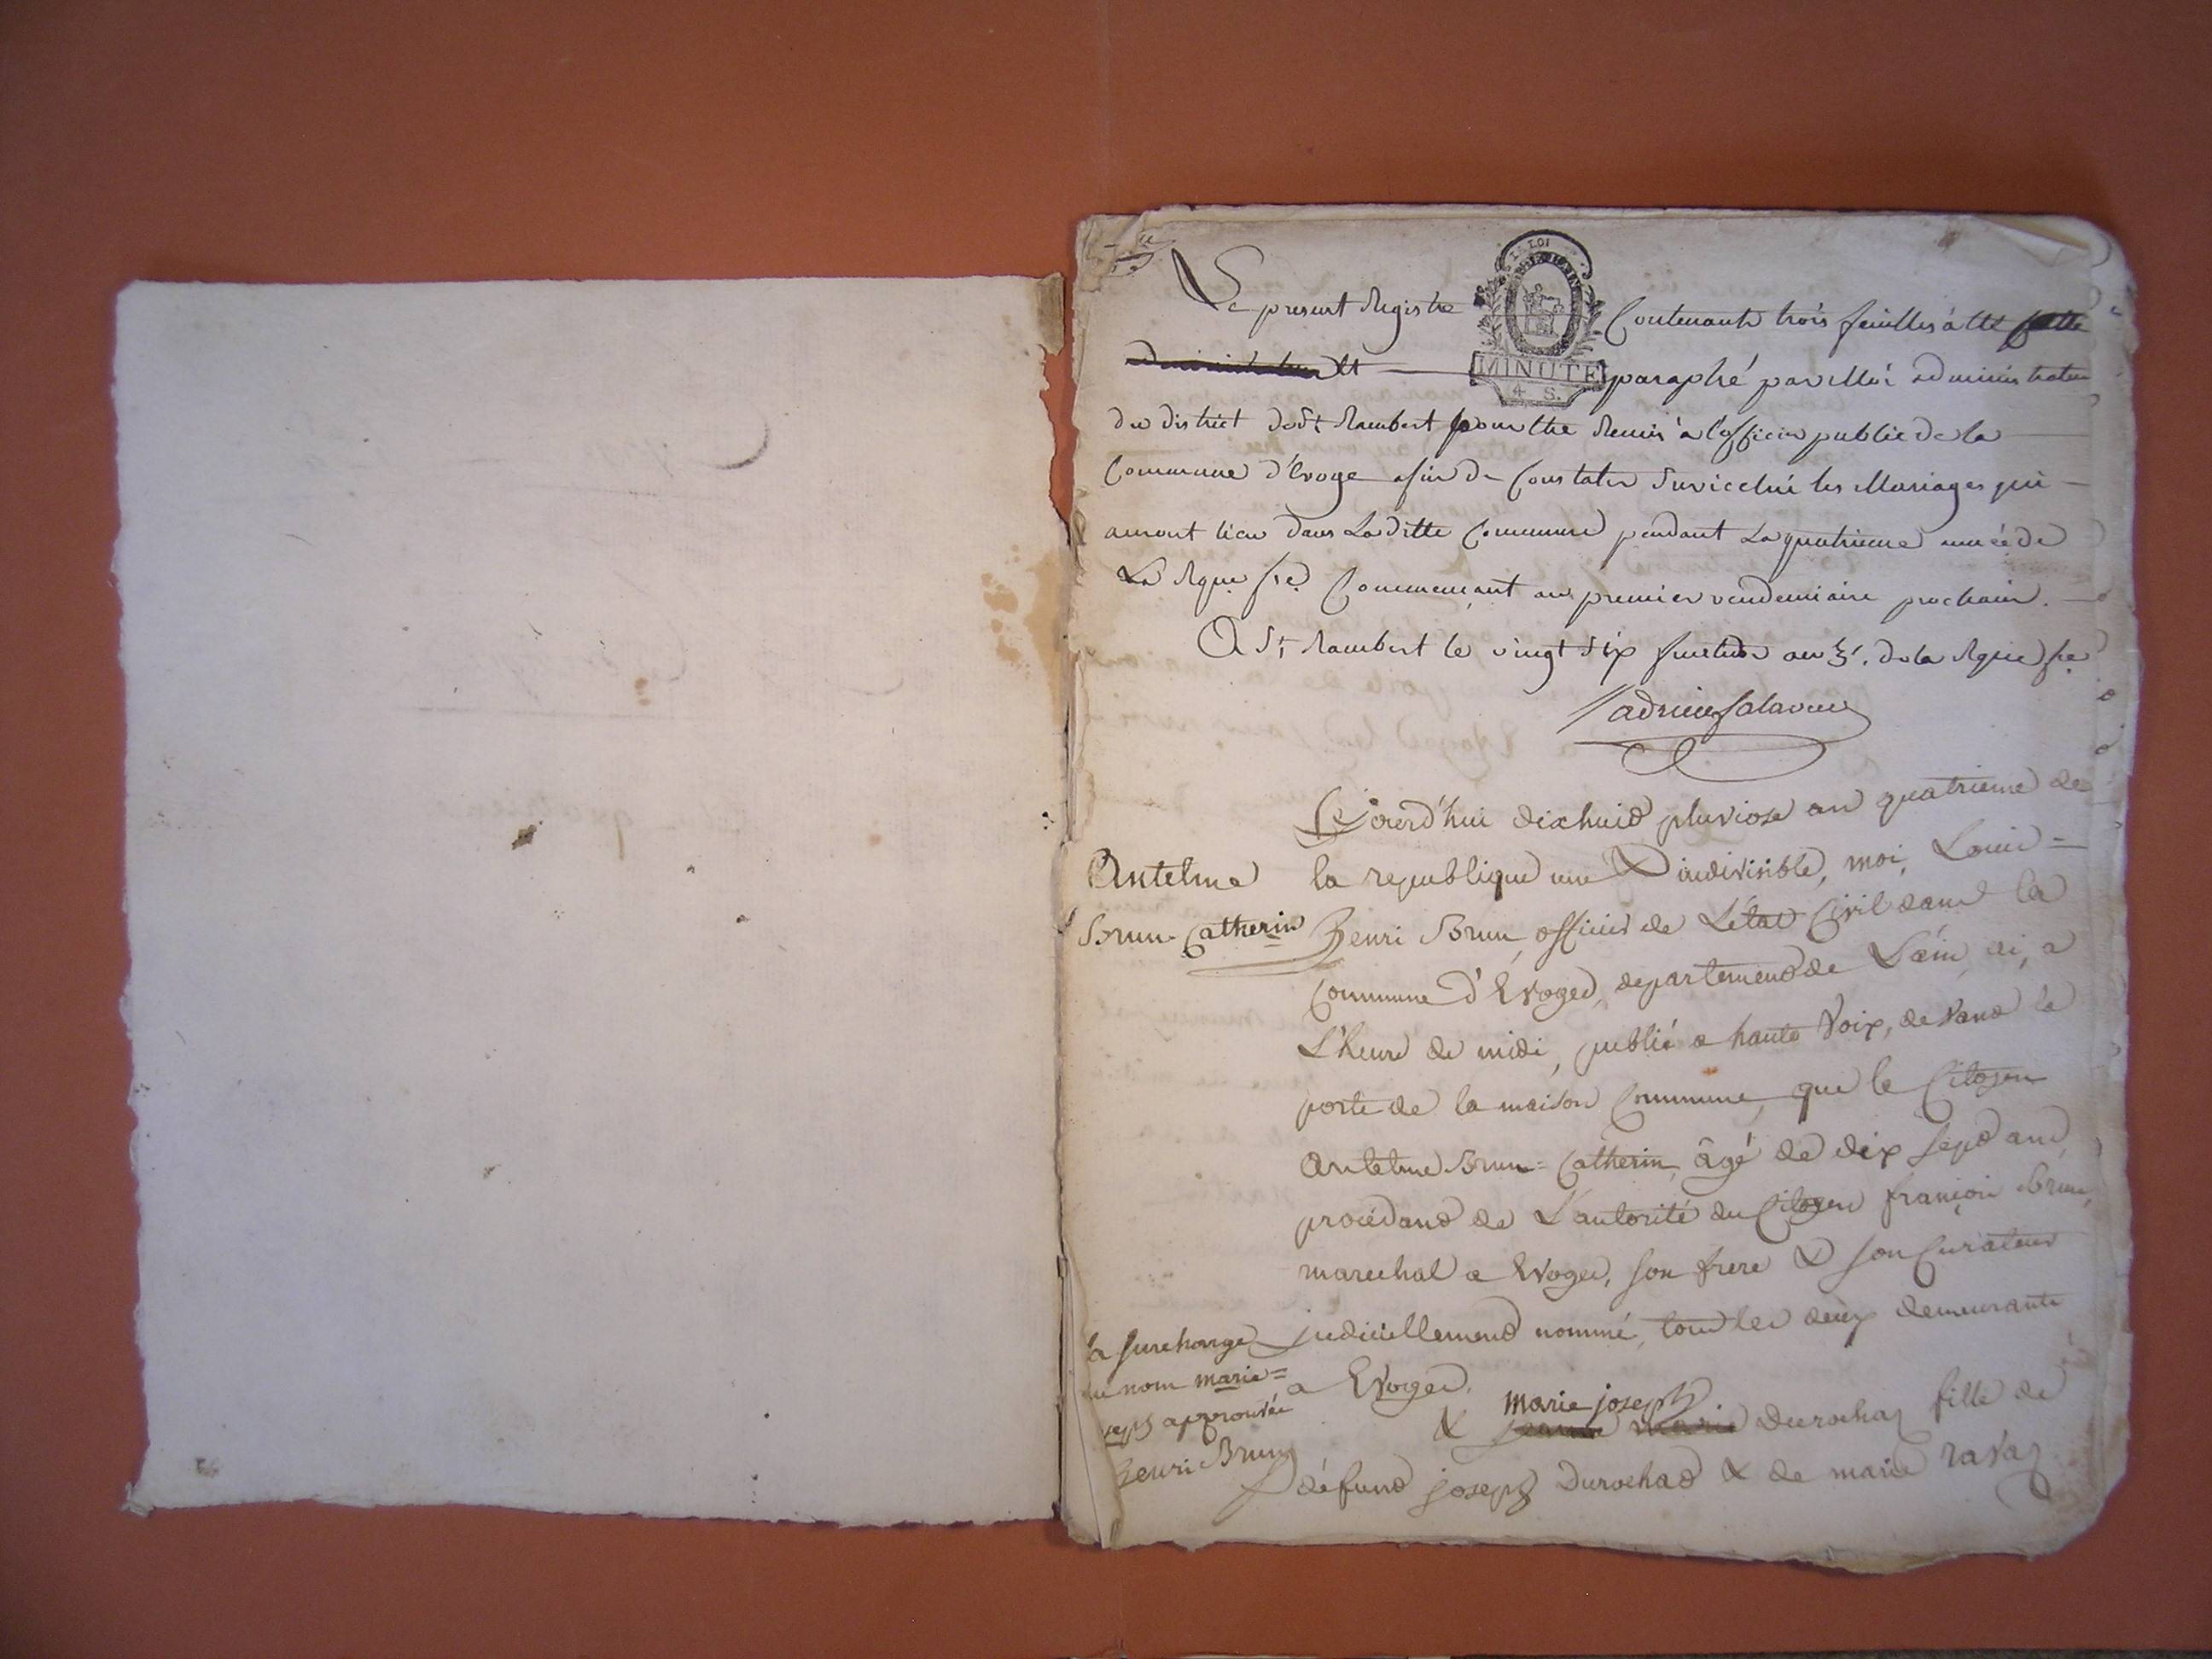 Le present Registre Contenant trois feuilles à été
LA LOI
MINUTE
4 S.
et paraphé par Moi administrateur
du district de St Rambert pour être Remis à l'officier public de la
Commune d'Evoge afin de Constater Sur icelui les Mariages qui
auront lieu dans La ditte Commune pendant La quatrieme année de
La Rque fse Commençant au premier vendemiaire prochain.
A St Rambert le vingt Six fructidor an 3e. de la Rque fse
Cejourd'hui dixhuit pluviose an quatrieme de
Antelme
la republique une & indivisible, moi, Louis=
Brun-Catherin
henri Brun, officier de L'état Civil dans la
Commune d'Evoges, departement de L'ain, ai, a
L'heure de midi, publié a haute Voix, devant la
porte de la maison Commune, que le Citoyen
Antelme Brun=Catherin, âgé de dix sept ans,
procédant de L'autorité du Citoyen françois Brun,
marechal a Evoges, son frere & son Curateur
judiciellement nommé, tous les deux demeurants
a Evoges.
la surcharge
du nom marie=
joseph approuvée
henri Brun
marie joseph
& jeanne marie Durochaz fille de
défunt joseph Durochat & de marie ravaz